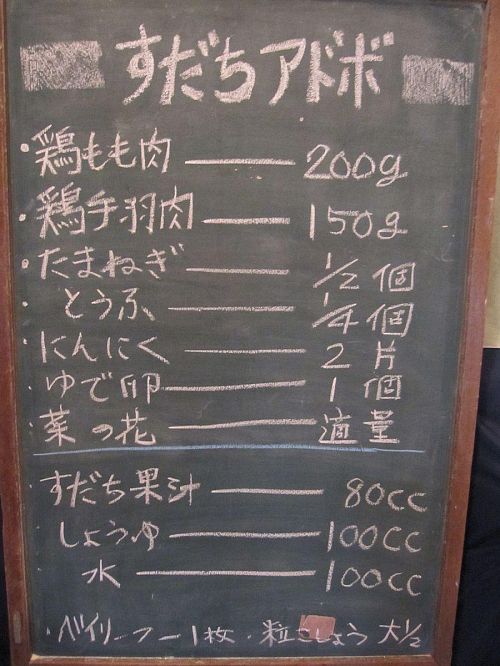 すだちアドボ
・鶏もも肉 ―― 200g
・鶏手羽肉 ―― 150g
・たまねぎ ―― 1/2 個
・とうふ ―― 1/4 個
・にんにく ―― 2 片
・ゆで卵 ―― 1 個
・菜の花 ―― 適量
・すだち果汁 ―― 80cc
・しょうゆ ―― 100cc
・水 ―― 100cc
・ベイリーフ ― 1枚 ・粒こしょう 大1/2